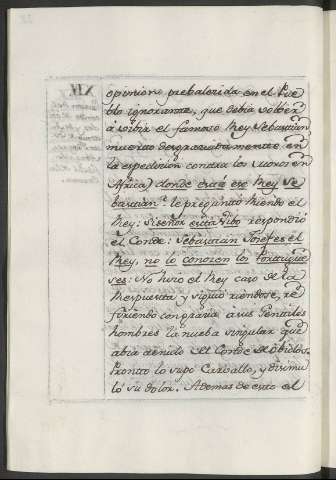 opinion prebalecida en el Pue
blo ignorante, que debia volber
a vibir el famoso Rey Sebastian
muerto desgraciadamente en
la expedicion contra los moros en
Africa) donde está ese Rey Se
bastian? le preguntó riendo el
Rey: Señor está vibo respondió
el Conde: Sebastian Josef es el
Rey, no lo conocen los Portugue
ses: No hizo el Rey caso de la
Respuesta y siguió riendose, re
firiendo con gracia à sus Gentiles
hombres la nueba singular que
abia tenido del Conde de Obidos.
Pronto lo supo Carvallo, y disimu
ló su dolor. Ademas de esto el
XIV.